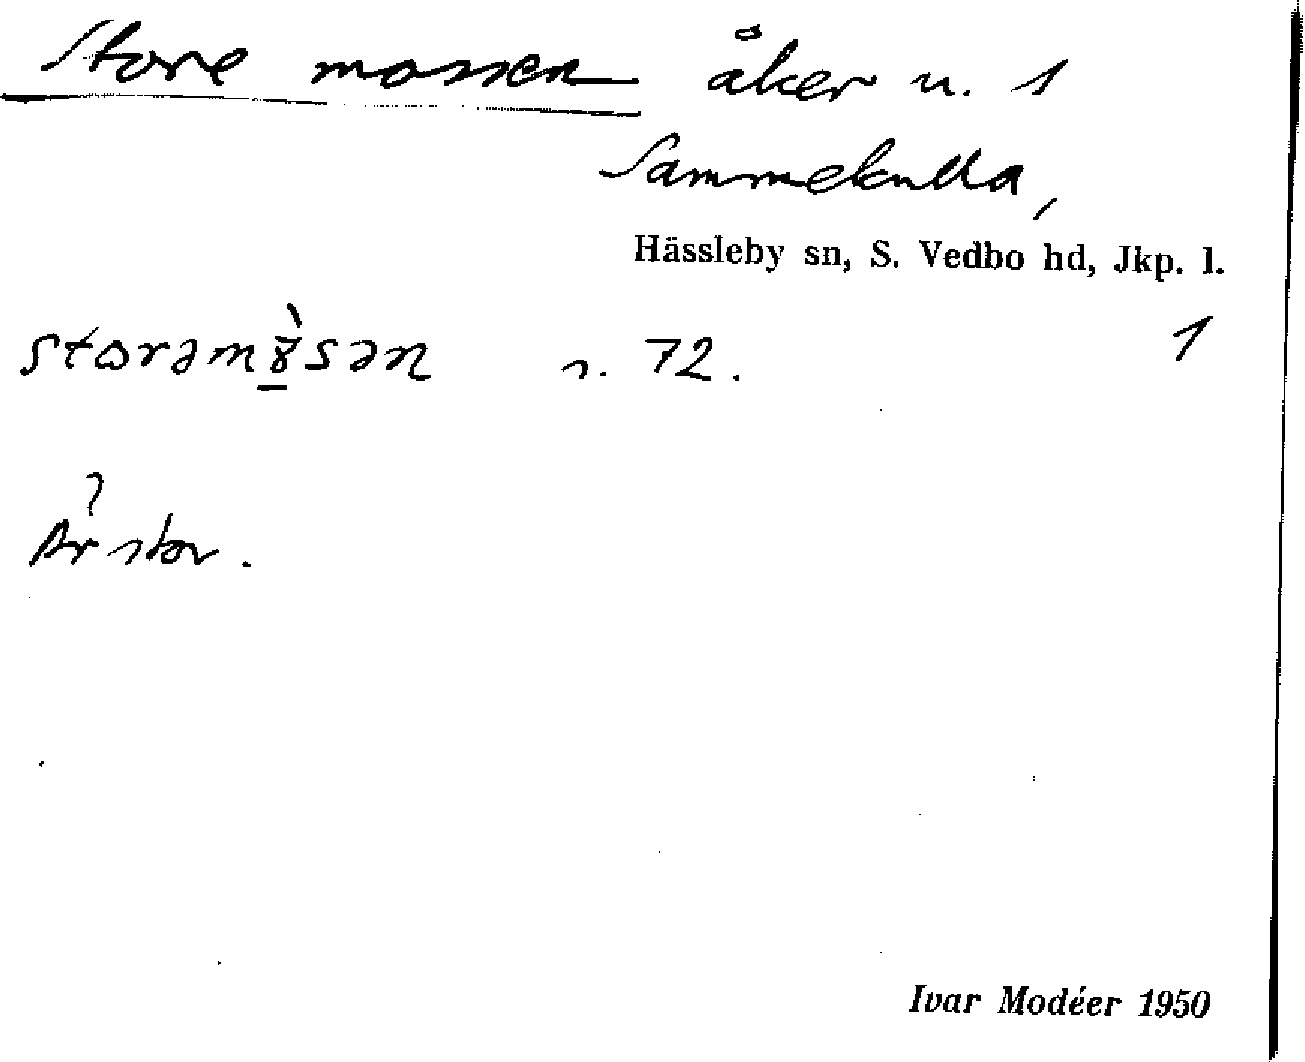 Store mossen åker u. 1
Sammekulla,
Hässleby sn, S. Vedbo hd, Jkp. l.
storəmɤ̠̀sən r. 72. 1
Är stor.
Ivar Modéer 1950